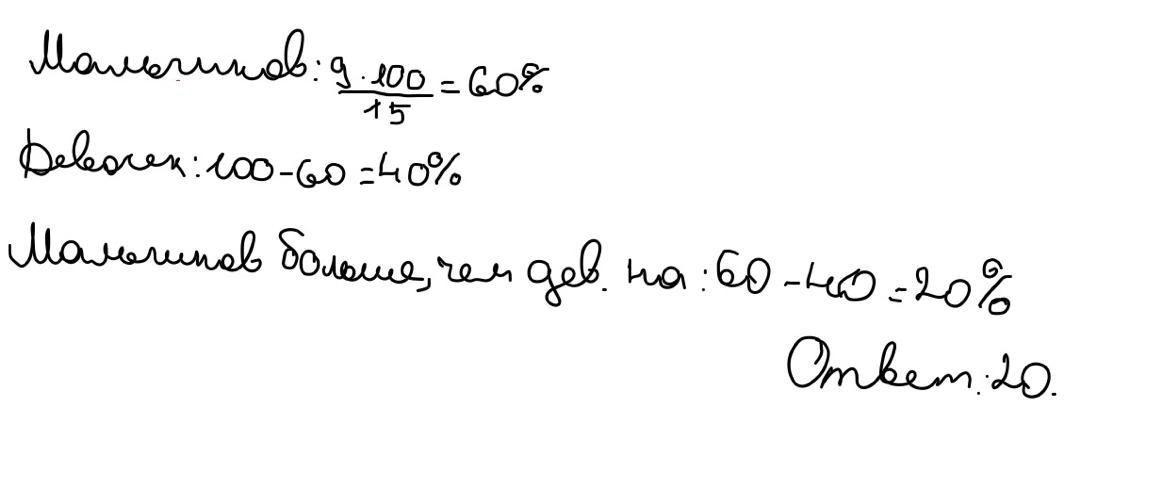 Мальчиков: 9·100/15 = 60%
Девочек: 100-60 = 40%
Мальчиков больше, чем дев. на: 60-40 = 20%
Ответ: 20.